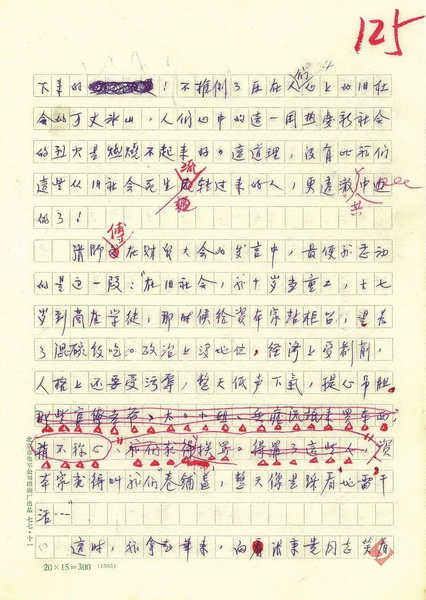 125
下来的！不推倒了压在人们心上的旧社
会的万丈冰山，人们心中的这一团热爱新社会
的烈火是燃烧不起来的。这道理，没有比我们
这些从旧社会死生流转过来的人，更透澈
的了！
张师傅在财贸大会的发言中，最使我感动
的是这一段："在旧社会，我十岁当童工，十七
岁到商店学徒，那时候给资本家站柜台，望去
了混碗饭吃。政治上没地位，经济上受剥削，
人格上还要受污辱，整天低声下气，提心吊胆。
那些官僚老爷、太太小姐、
稍不称心，我们就得挨骂。得罪了这些人，资
本家就得叫我们"卷铺盖"，整天像是踩着地雷干
活……"
这时，我拿起笔来，向张秉贵同志笑着
20×15=300 (1502)